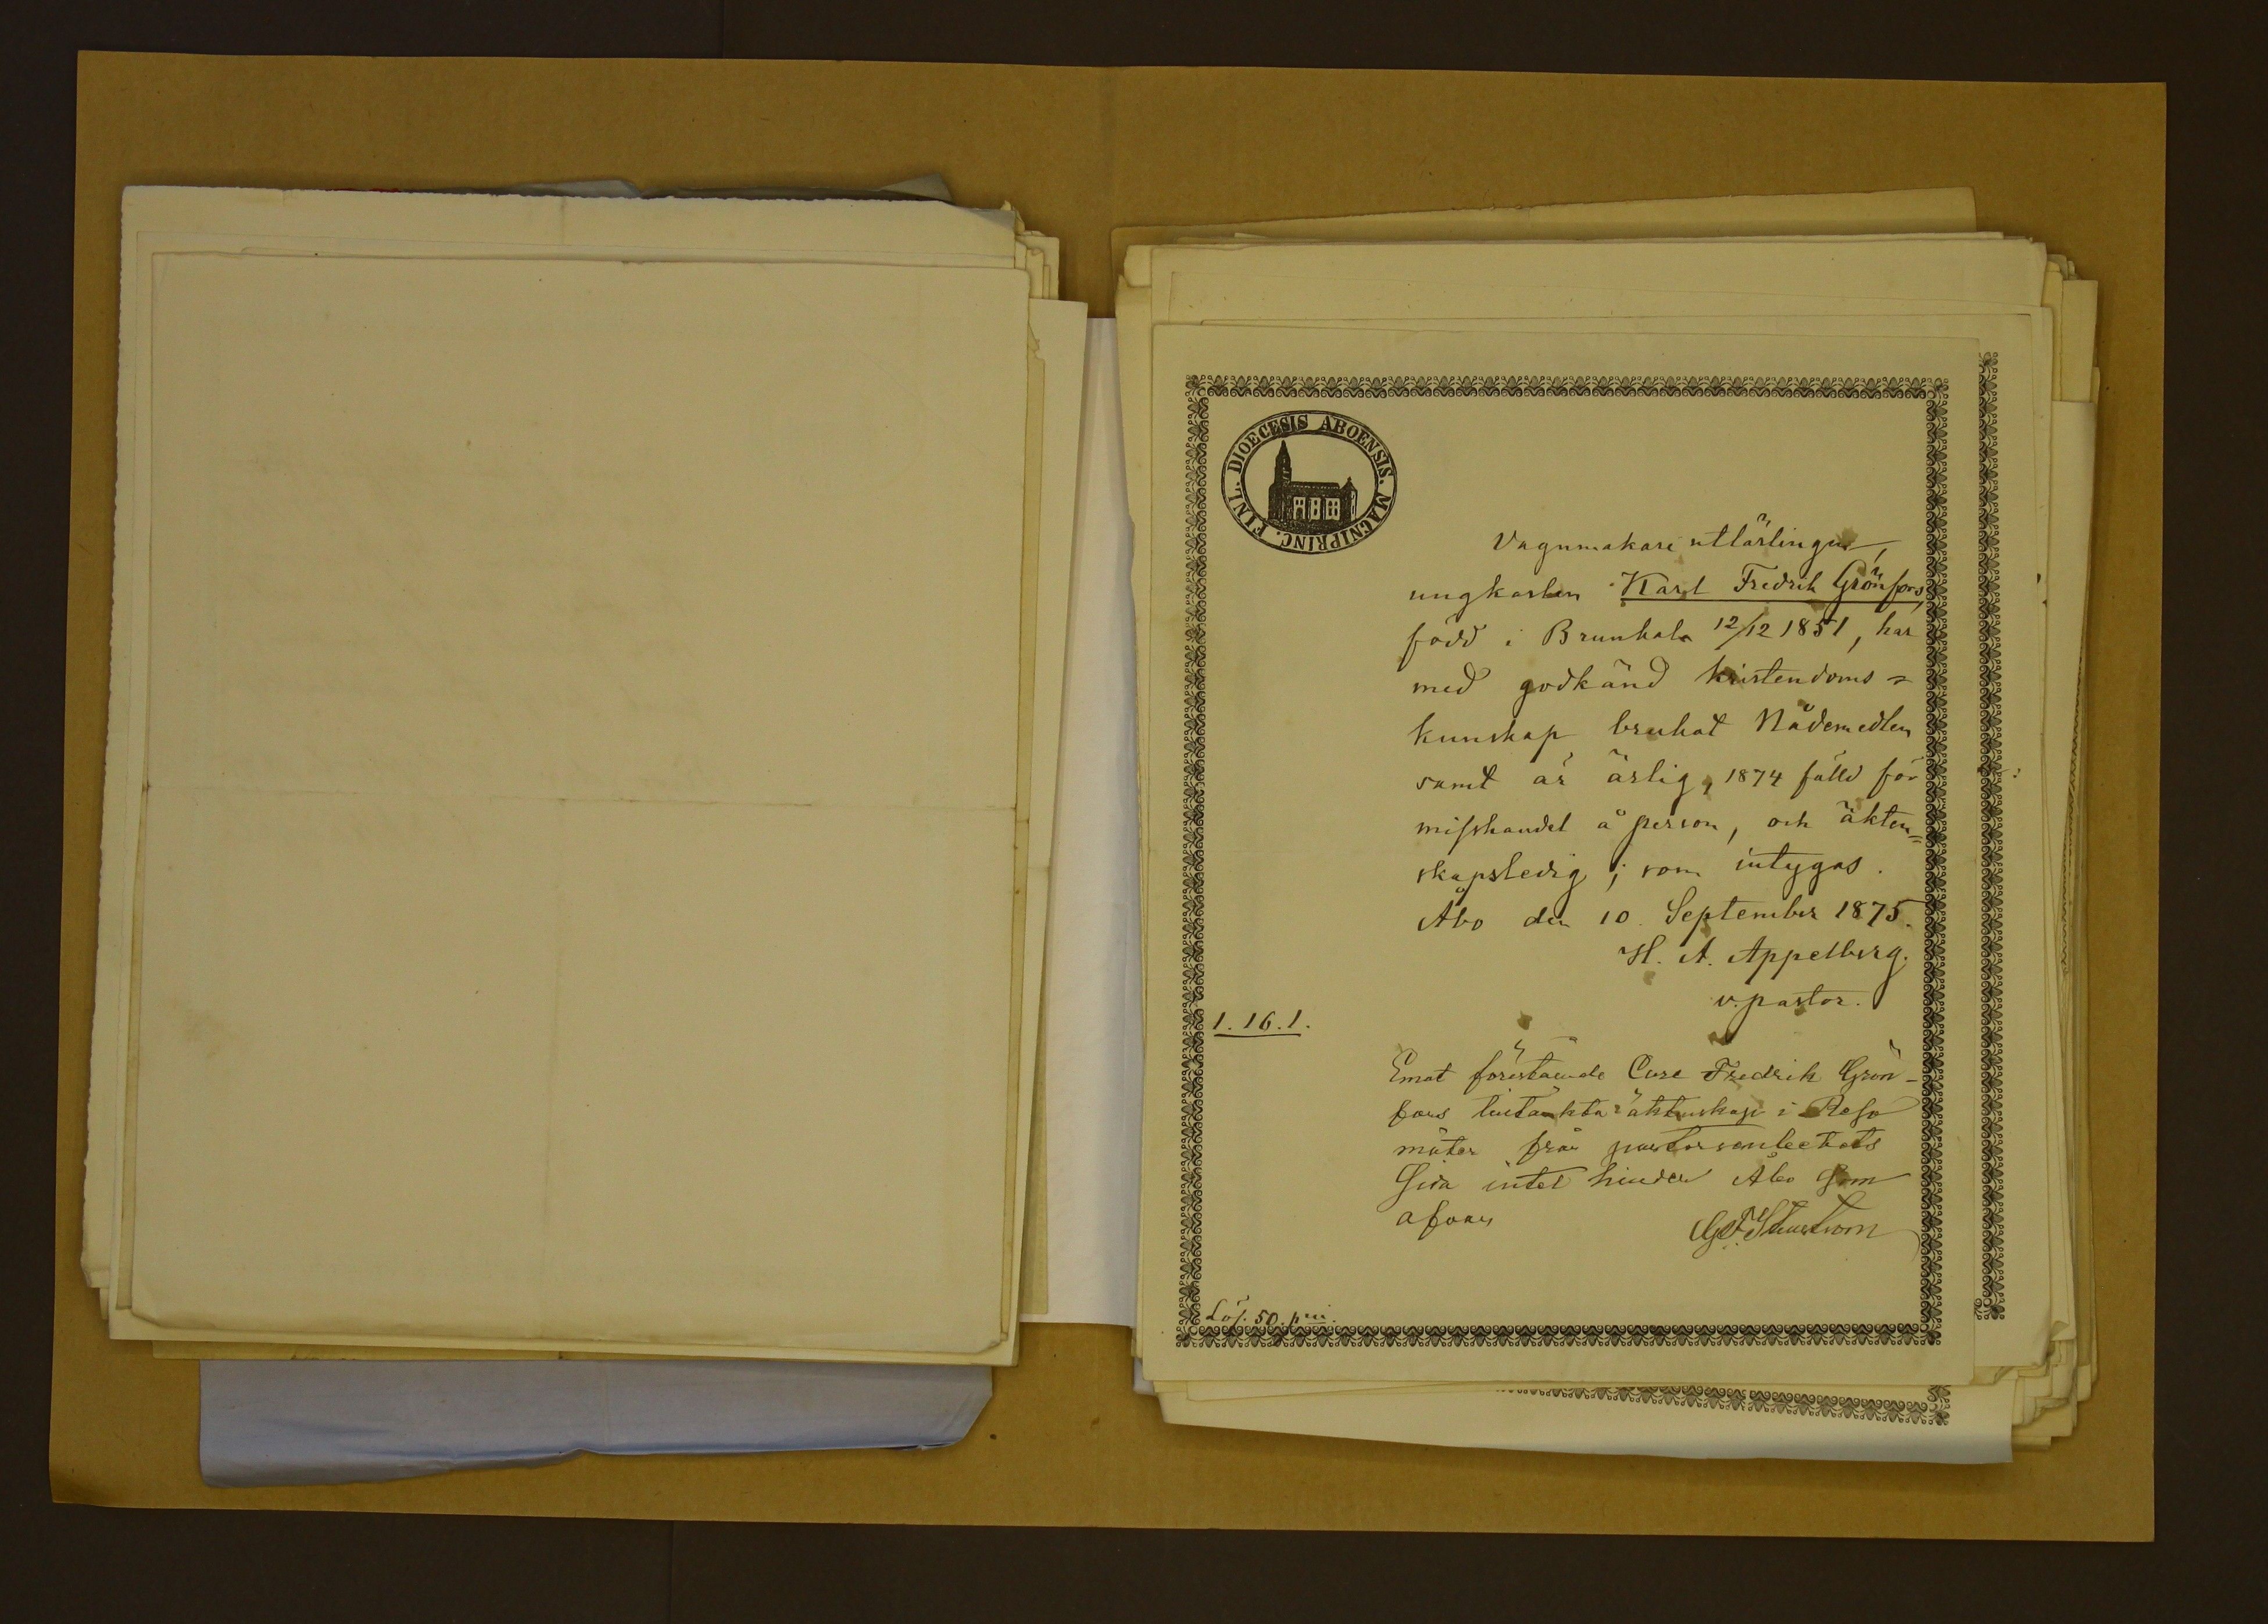 DIOECESIS ABOENSIS. MAGNIPRINC. FINL.
Vagnmakare utlärlingen,
ungkarlen Karl Fredrik Grönfors,
född i Brunkala 12/12 1851, har
med godkänd kristendoms=
kunskap brukat Nådemedlen
samt är ärlig, 1874 fälld för
misshandel å person, och äkten=
skapsledig; som intygas.
Åbo den 10 September 1875.
H. A. Appelberg.
v. pastor.
1. 16. 1.
Emot förestående Carl Fredrik Grön-
fors tilltänkta äktenskap i Reso
möter från
Sida intet hinder Åbo som
ofvan
Lös. 50. pni.